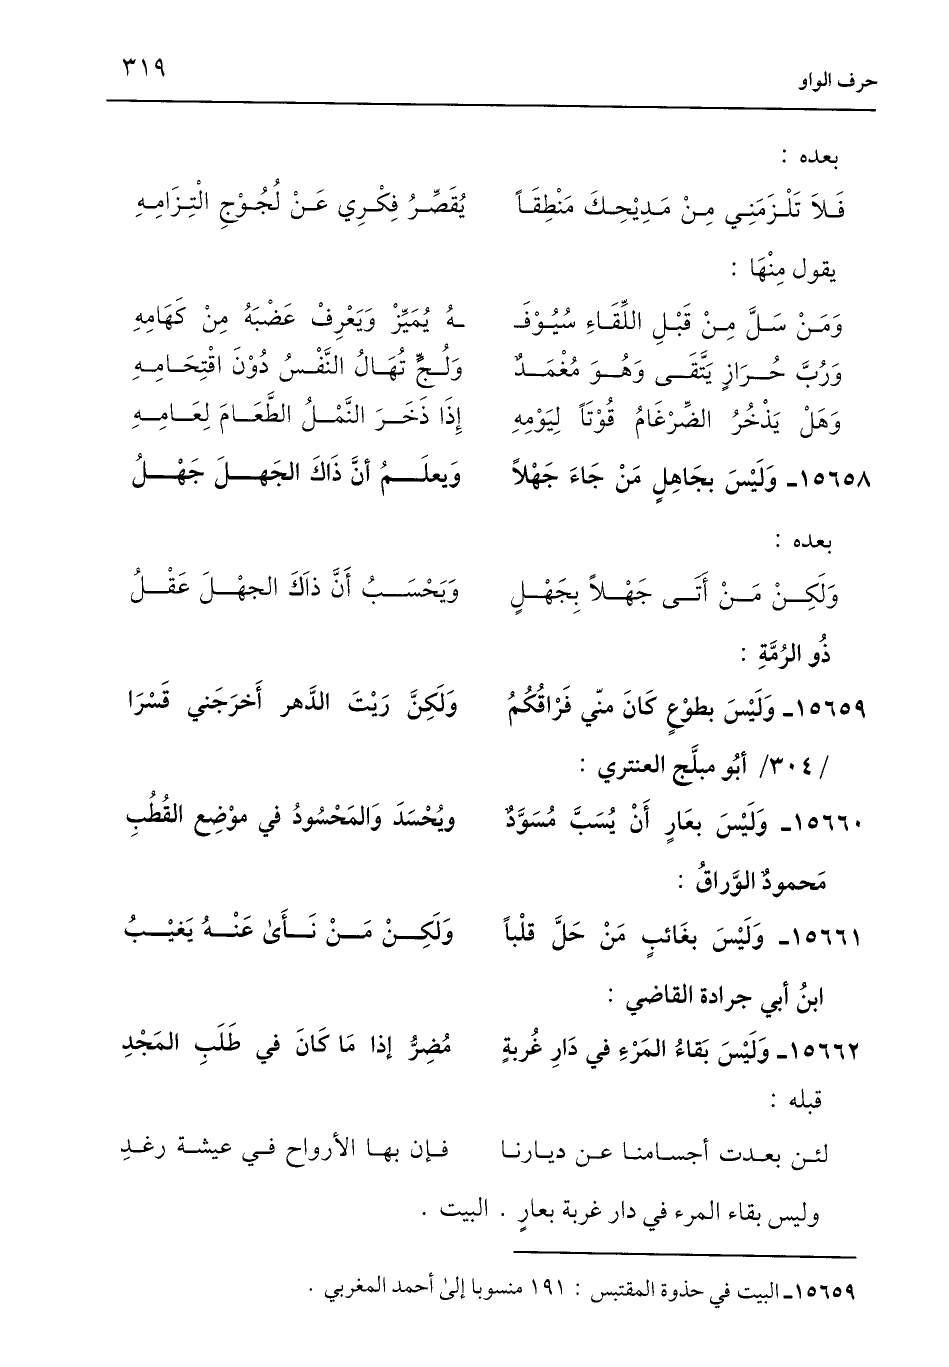 حرف الواو ٣١٩
بعده :
فَلاَ تَلْزَمَنِي مِنْ مَدِيْحِكَ مَنْطِقَاً يُقَصِّرُ فِكْرِي عَنْ لُجُوْجِ الْتِزَامِهِ
يقول مِنْهَا :
وَمَنْ سَلَّ مِنْ قَبْلِ اللِّقَاءِ سُيُوْفَـ ـهُ يُمَيِّزْ وَيَعْرِفْ عَضْبَهُ مِنْ كَهَامِهِ
وَرُبَّ حُرَازٍ يَتَّقَى وَهُوَ مُغْمَدٌ وَلُجٌّ تُهَالُ النَّفْسُ دُوْنَ اقْتِحَامِهِ
وَهَلْ يَذْخُرُ الضِّرْغَامُ قُوْتَاً لِيَوْمِهِ إِذَا ذَخَرَ النَّمْلُ الطَّعَامَ لِعَامِهِ
١٥٦٥٨ـ وَلَيْسَ بِجَاهِلٍ مَنْ جَاءَ جَهْلاً وَيعلَمُ أنَّ ذَاكَ الجَهلَ جَهْلُ
بعده :
وَلَكِنْ مَنْ أَتَى جَهْلاً بِجَهْلٍ وَيَحْسَبُ أَنَّ ذاَكَ الجهْلَ عَقْلُ
ذُو الرُمَّةِ :
١٥٦٥٩ـ وَلَيْسَ بطوْعٍ كَانَ منّي فَرْاقُكُمُ وَلَكِنَّ رَيْبَ الدَّهر أَخرَجَني قَسْرَا
/٣٠٤/ أبُو مبلَّج العنتري :
١٥٦٦٠ـ وَلَيْسَ بعَارٍ أَنْ يُسَبَّ مُسَوَّدٌ ويُحْسَدَ وَالمَحْسُودُ في موْضِع القُطُبِ
مَحمودٌ الوَّراقُ :
١٥٦٦١ـ وَلَيْسَ بغَائبٍ مَنْ حَلَّ قلْباً وَلَكِنْ مَنْ نَأَىٰ عَنْهُ يَغيْبُ
ابنُ أبي جرادة القاضي :
١٥٦٦٢ـ وَلَيْسَ بَقاءُ المَرْءِ في دَارِ غُربةٍ مُضِرُّ إذا مَا كَانَ في طَلَبِ المَجْدِ
قبله :
لئن بعدت أجسامنا عن ديارنا فإن بها الأرواح في عيشة رغدِ
وليس بقاء المرء في دار غربة بعارٍ . البيت .
١٥٦٥٩ـ البيت في حذوة المقتبس : ١٩١ منسوبا إلىٰ أحمد المغربي .